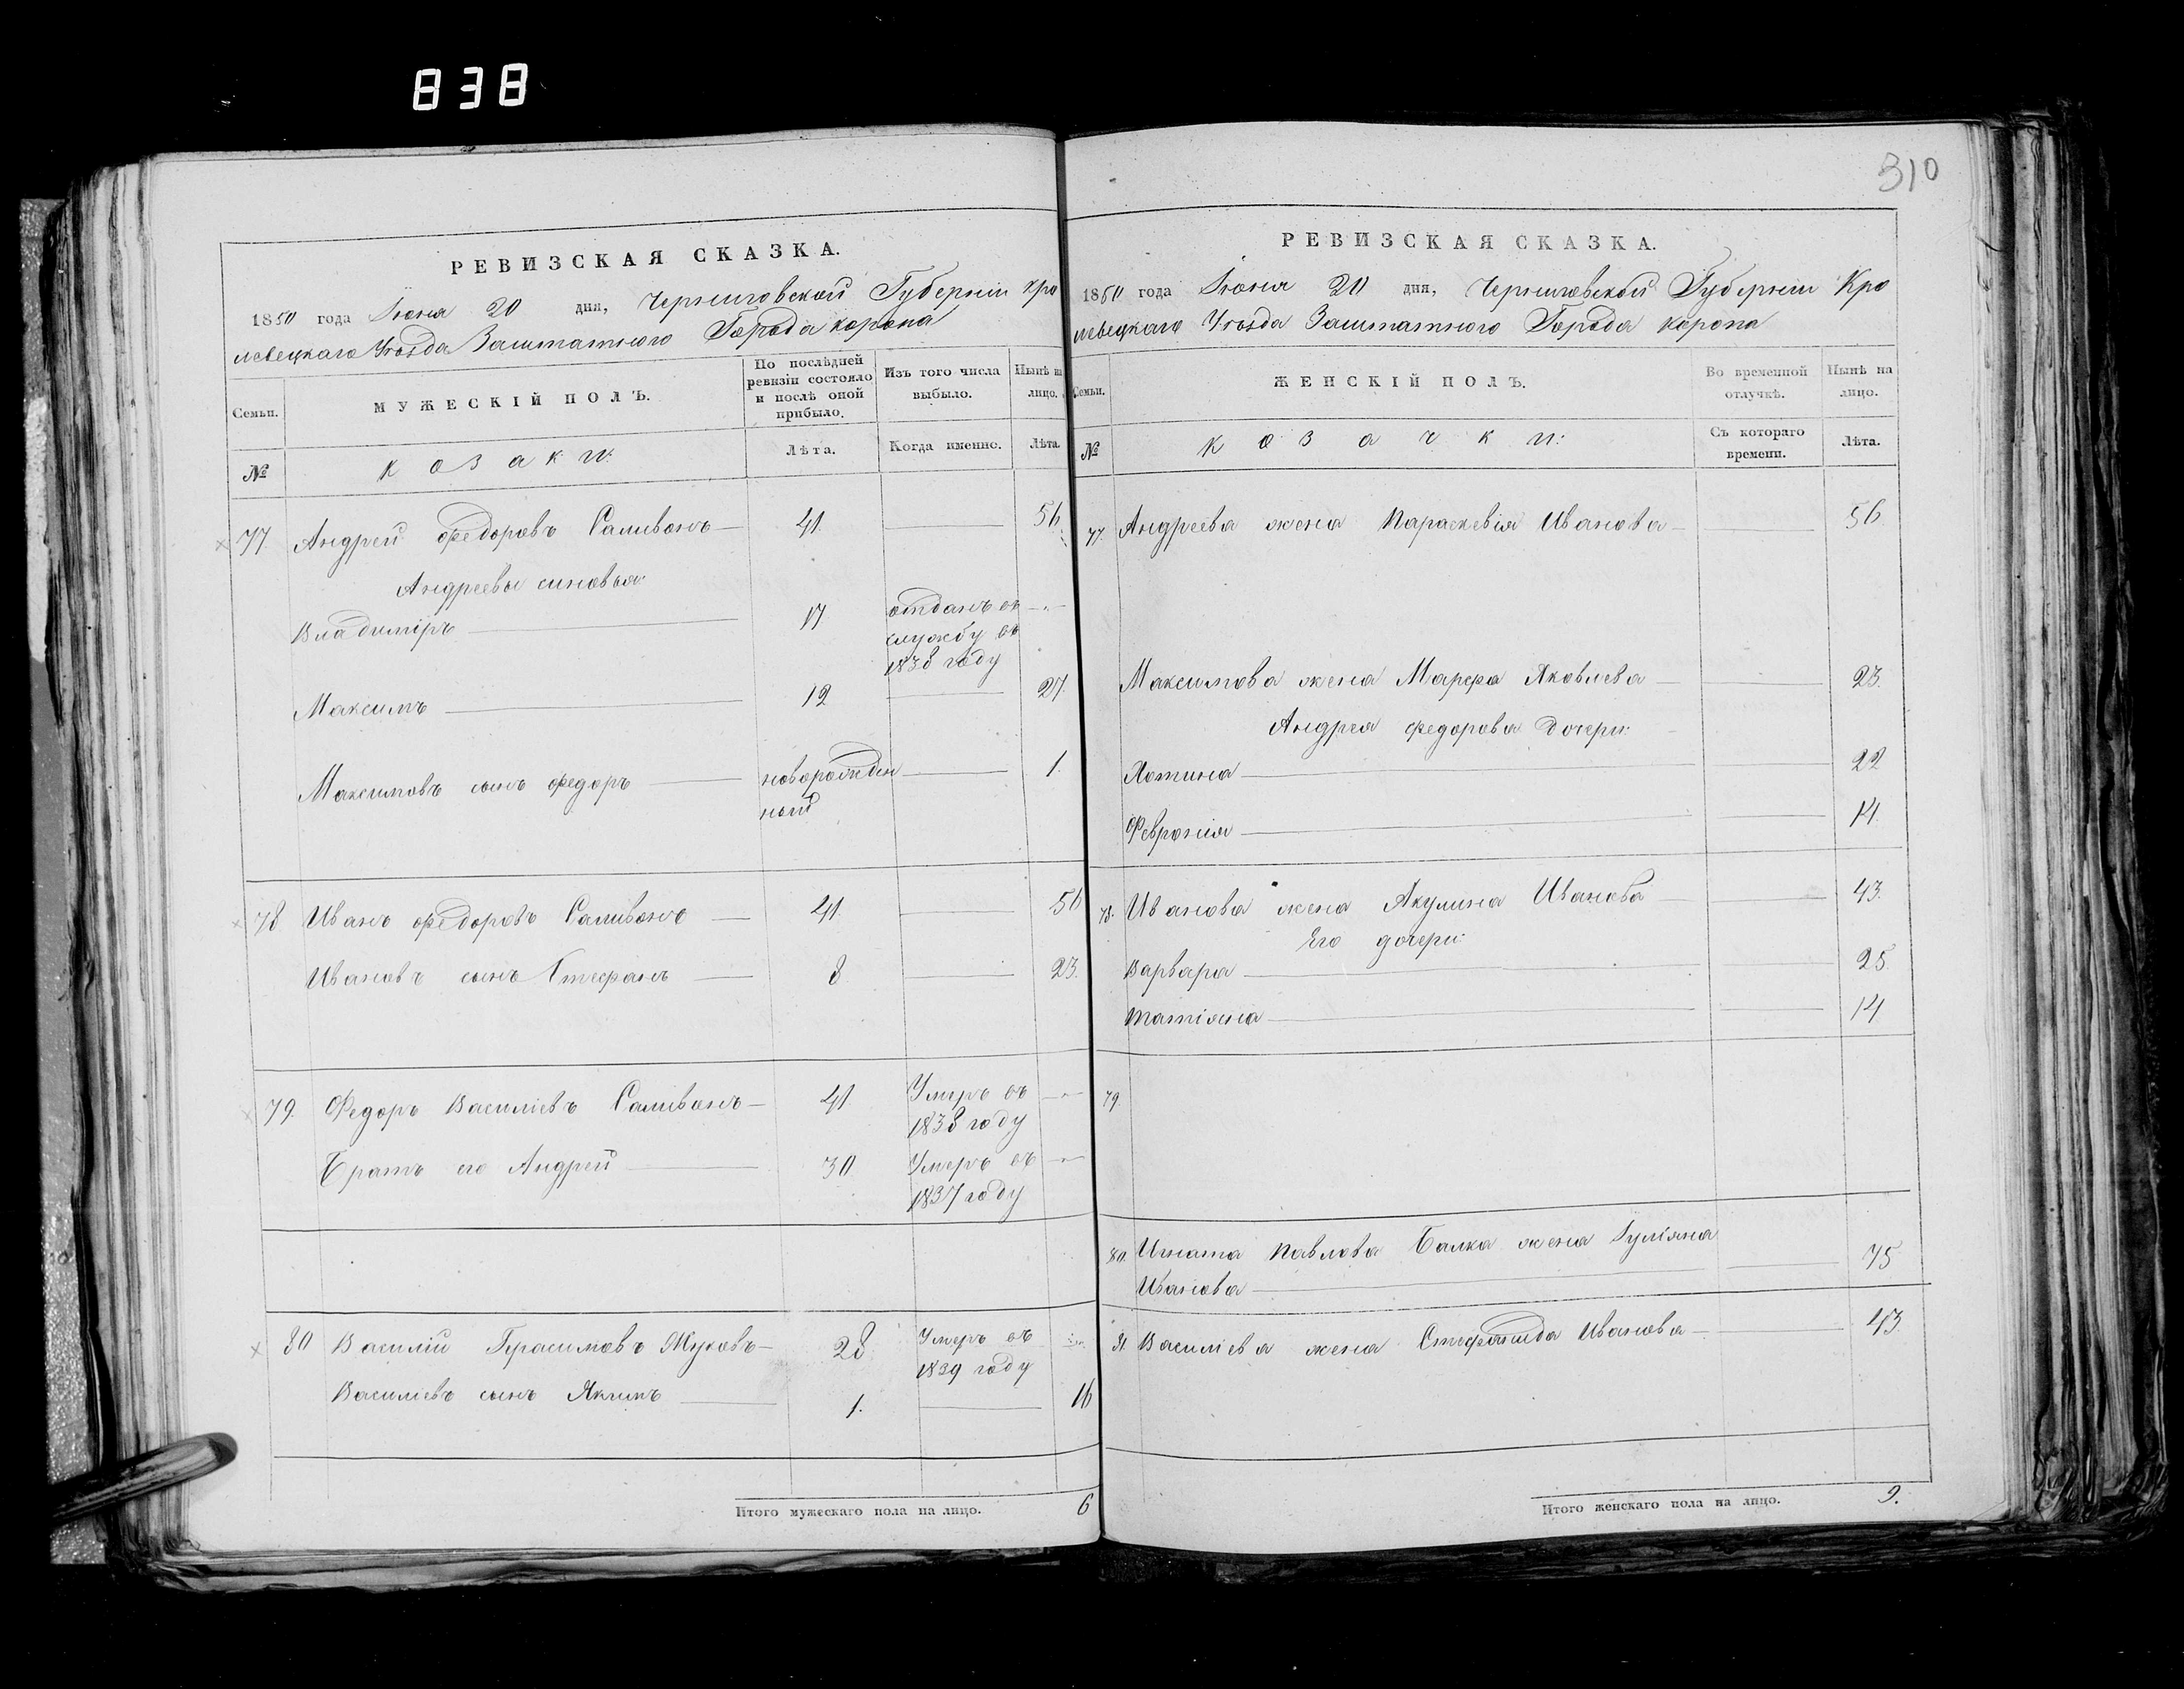 838
310
РЕВИЗСКАЯ СКАЗКА.
1850 года Іюня 20 дня, Черниговской Губерніи Кро
левецкаго Уѣзда Заштатного Города Коропа
Семьи.
МУЖЕСКІЙ ПОЛЪ.
По послѣдней
ревизіи состояло
и послѣ оной
прибыло.
Изъ того числа
выбыло.
Нынѣ на
лицо.
№
козаки:
Лѣта.
Когда именно.
Лѣта.
77 Андрей Федоровъ Саливонъ 41. 56
Андреевы синовья:
Владиміръ 17 отданъ въ
службу въ
1838 году
Максимъ 12 27.
Максимовъ сынъ Федоръ новорожден
ный 1.
78 Иванъ Федоровъ Саливонъ 41. 56
Ивановъ сынъ Стефанъ 8 23.
79. Федоръ Василіевъ Саливонъ 41 Умеръ въ
1838 году
Братъ его Андрей 30 Умеръ въ
1837 году
80 Василій Герасимовъ Жуковъ 28 Умеръ въ
1839 году
Василіевъ сынъ Якимъ 1. 16
Итого мужескаго пола на лицо. 6
РЕВИЗСКАЯ СКАЗКА.
1850 года Іюня 20 дня, Черниговской Губерніи Кро
левецкаго Уѣзда Заштатного Города Коропа
Семьи.
ЖЕНСКІЙ ПОЛЪ.
Во временной
отлучкѣ.
Нынѣ на
лицо.
№
козачки:
Съ котораго
времени.
Лѣта.
77. Андреева жена Параскевія Иванова 56
Максимова жена Марфа Яковлева 23.
Андрея Федорова дочери:
Хотина 22
Февронія 14.
78. Иванова жена Акулина Иванова 43.
Его дочери:
Варвара 25
Татіяна 14
79
80. Игната Павлова Балка жена Іуліяна
Иванова 75
81. Василіева жена Стефанида Иванова 43.
Итого женскаго пола на лицо. 9.